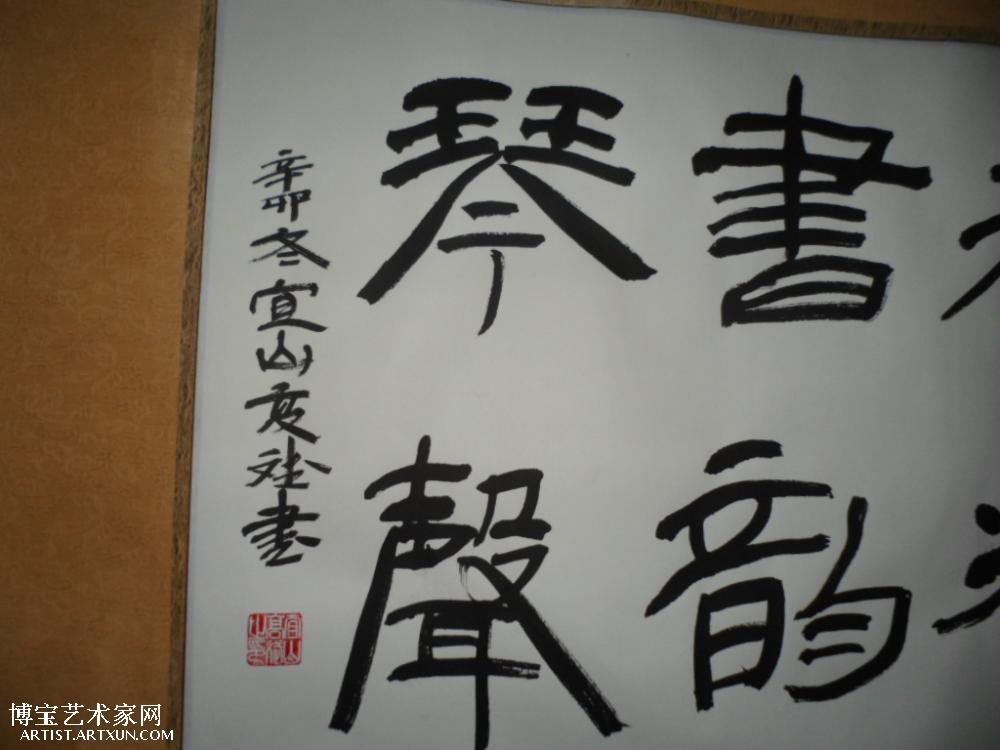 書韵
琴聲
辛卯冬宜山斌書
博宝艺术家网
ARTIST.ARTXUN.COM